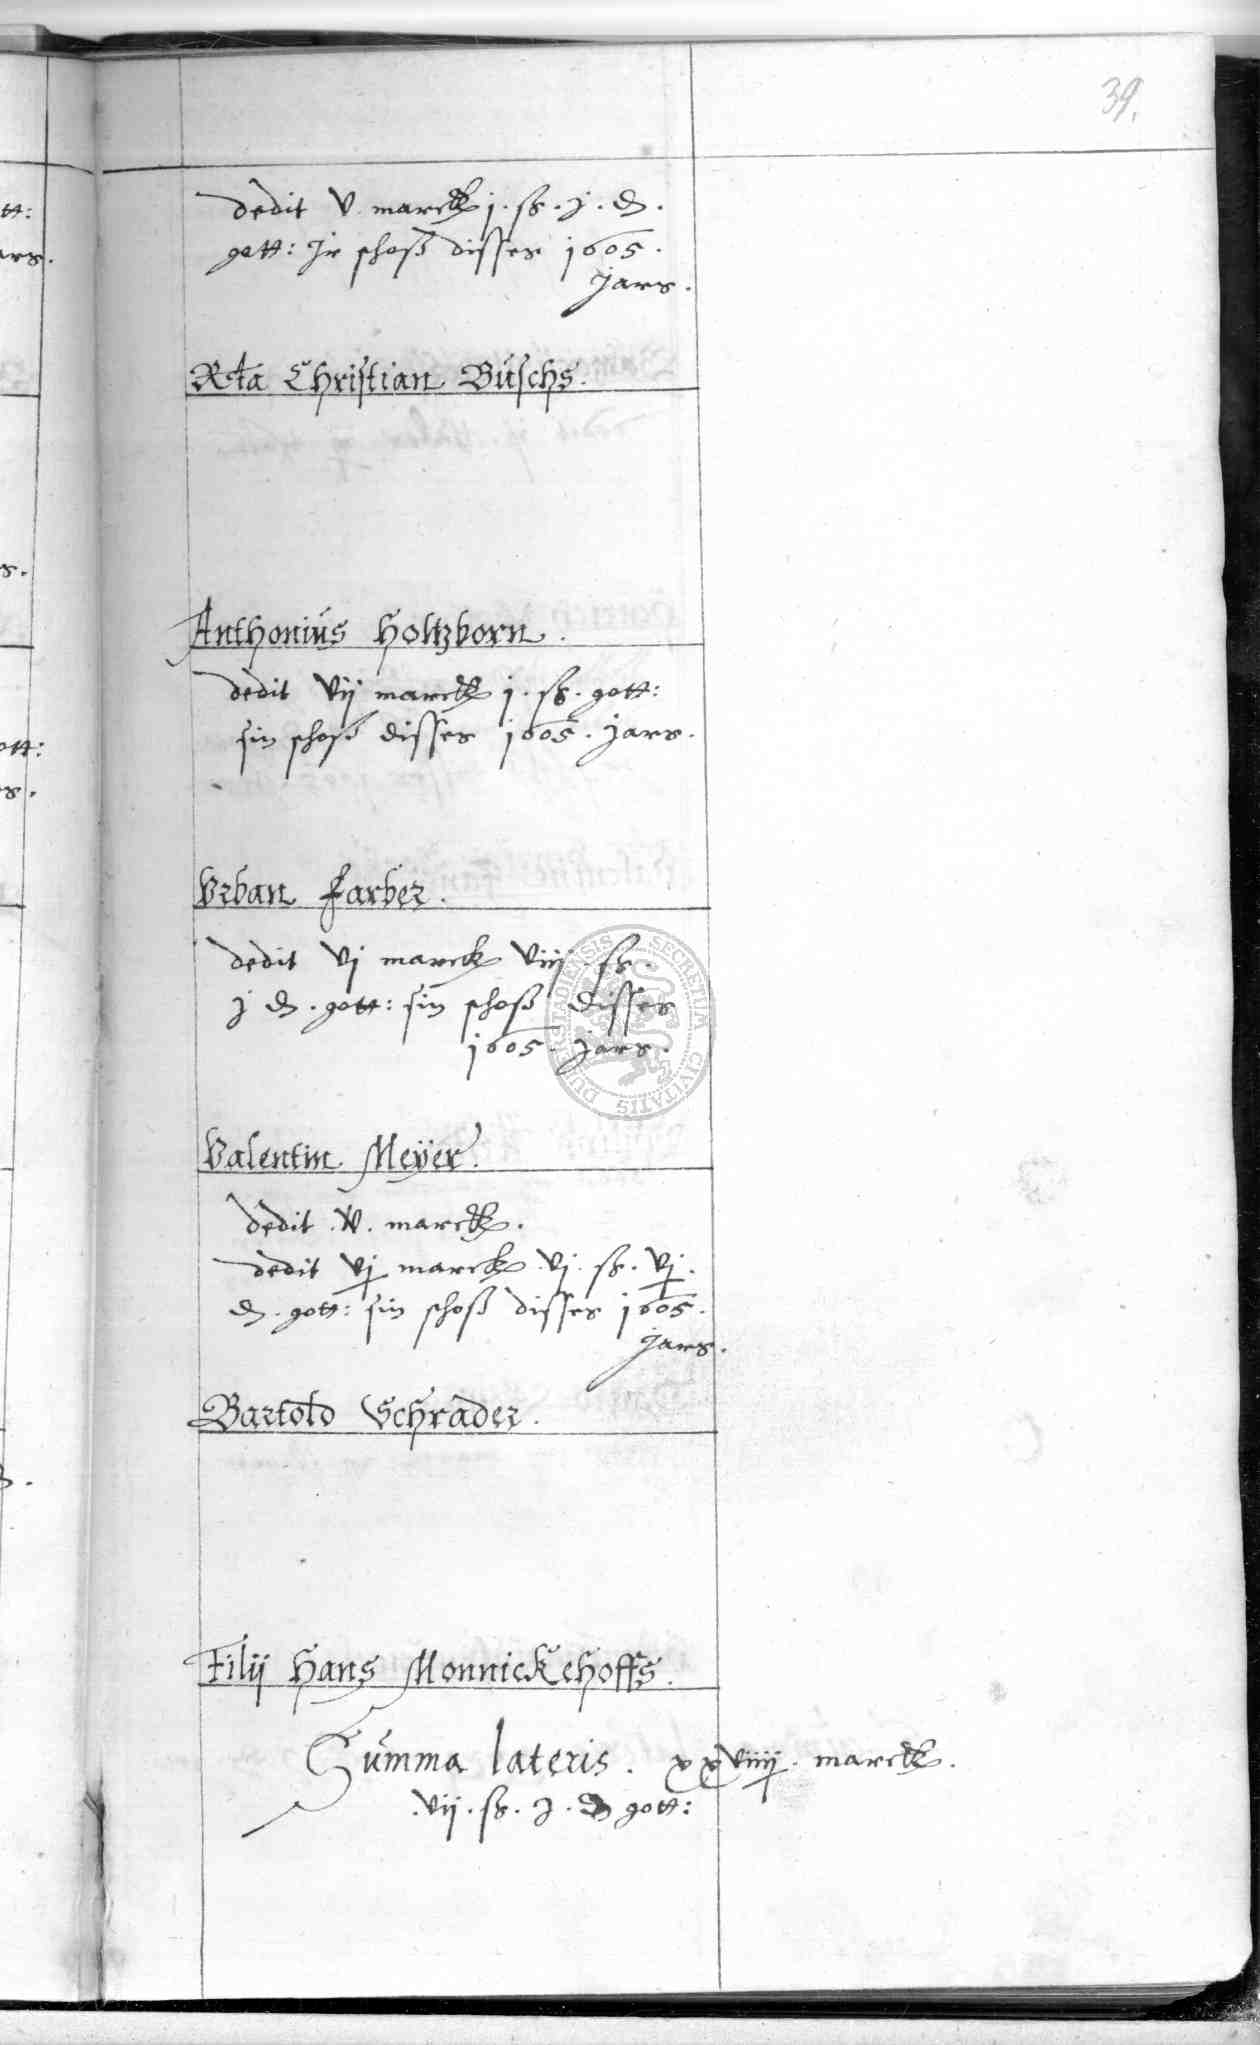 39.
dedit V. marck j. ß. j. ₰.
gott: Jr schoß disses 1605.
Jars.
Rta Christian Büschs.
Anthonius Holtzborn.
dedit Vij marck j. ß. gott:
sin schoß disses 1605. Jars.
Vrban Farber.
dedit Vj marck Viij. ß.
j ₰. gott: sin schoß disses
1605. Jars.
Valentin Meÿer.
dedit V. marck.
dedit Vj marck Vj. ß. Vj.
₰. gott: sin schoß disses 1605.
Jars.
Bartold Schrader.
Filij Hans Monnickehoffs.
Summa lateris. xxViiij. marck.
.Vij. ß. j. ₰ gott:
SECRETUM CIVITATIS DUDERSTADIENSIS